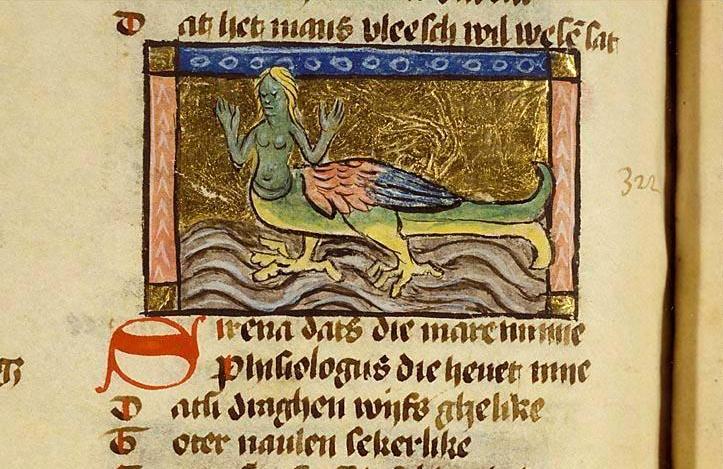 Dat het mans vleesch wil wesē sat
322
Sirena dats die mareminne
Phisiologus die hevet inne
Datsi draghen wijfs ghelike
Toter navlen sekerlike